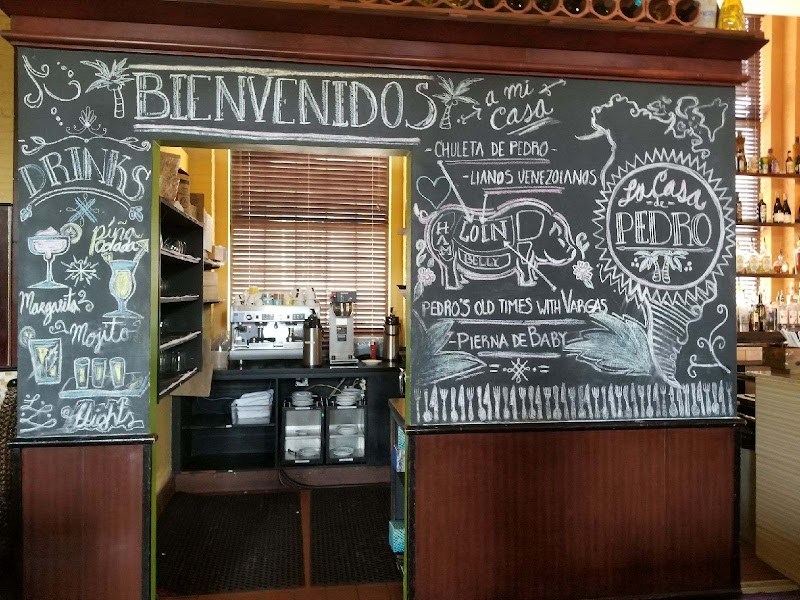 BIENVENIDOS
a mi
casa
DRINKS
piña
Colada
Margarita
Mojito
flights
-CHULETA DE PEDRO-
-LLANOS VENEZOLANOS
HAM
LOIN
BELLY
PEDRO'S OLD TIMES WITH VARGAS
-PIERNA DE BABY
La Casa
de
PEDRO